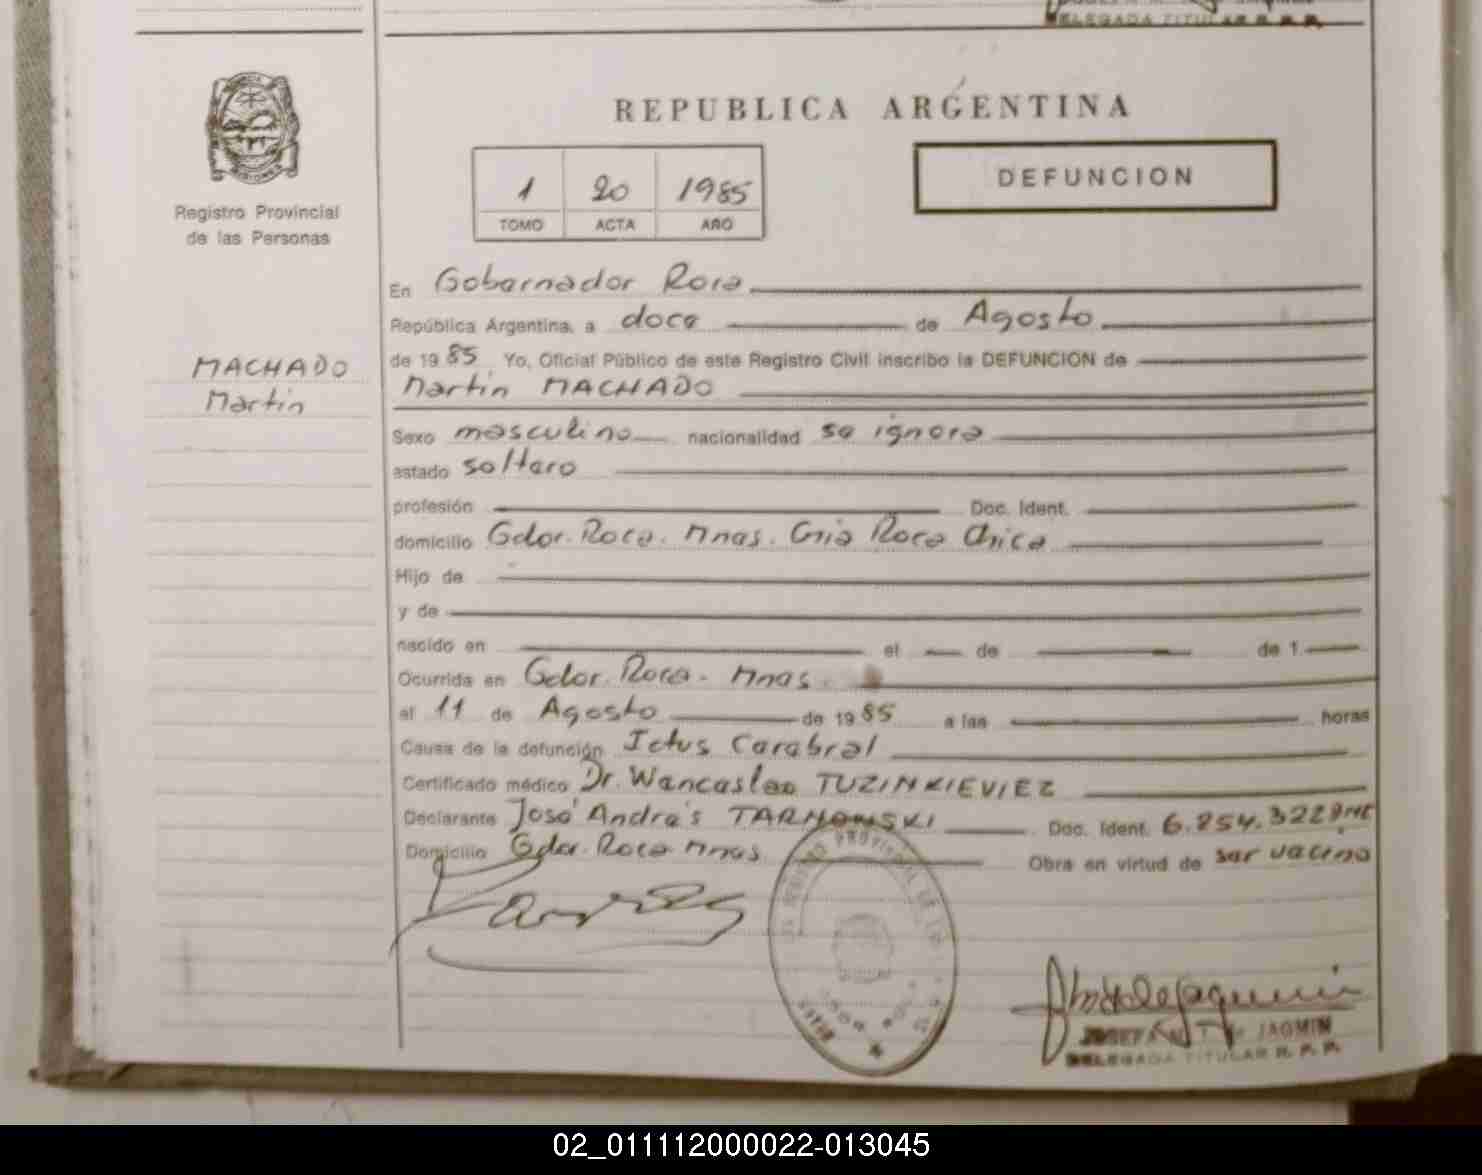 DELEGADA TITULAR R. P. P.
REPUBLICA ARGENTINA
DEFUNCION
1 20 1985
TOMO ACTA AÑO
Registro Provincial
de las Personas
En Gobernador Roca
República Argentina, a doce de Agosto
de 1985 Yo, Oficial Público de este Registro Civil inscribo la DEFUNCION de
MACHADO
Martin
Martin MACHADO
Sexo masculino nacionalidad se ignora
estado soltero
profesión Doc. Ident.
domicilio Gdor. Roca. Mnas. Cnia Roca Chica
Hijo de
y de
nacido en el de de 1
Ocurrida en Gdor. Roca. Mnas.
el 11 de Agosto de 1985 a las horas
Causa de la defunción Ictus Cerebral
Certificado médico Dr. Wenceslao TUZINKIEVIEZ
Declarante José Andrés TARNOWSKI Doc. Ident. 6.254.322
Domicilio Gdor. Roca Mnas Obra en virtud de ser vecino
REGISTRO PROVINCIAL DE
JAGMIN
DELEGADA TITULAR R. P. P.
02_011112000022-013045